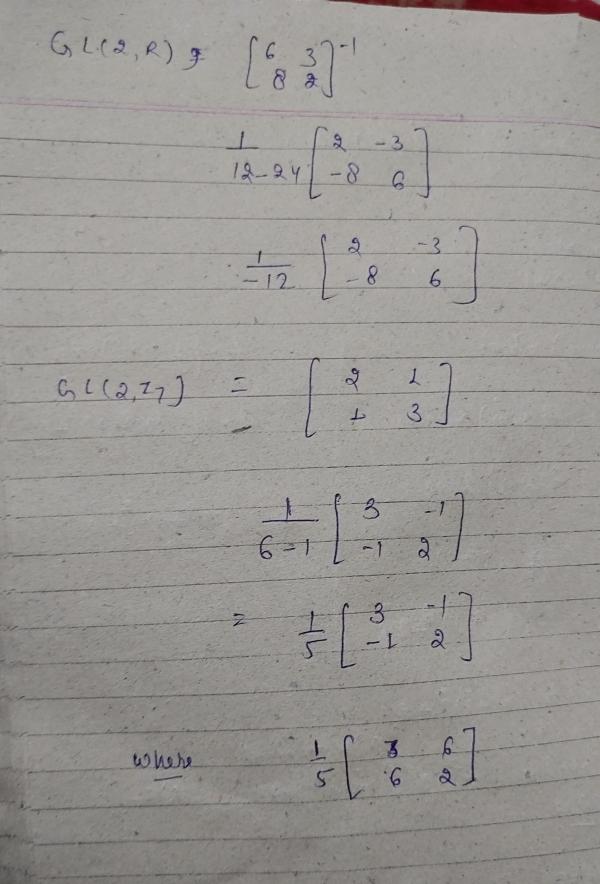 GL(2, R) ⇒ [6 3
8 2]^-1
1/12-24 [2 -3
-8 6]
1/-12 [2 -3
-8 6]
GL(2, Z7) = [2 1
1 3]
1/6-1 [3 -1
-1 2]
= 1/5 [3 -1
-1 2]
where 1/5 [3 6
6 2]